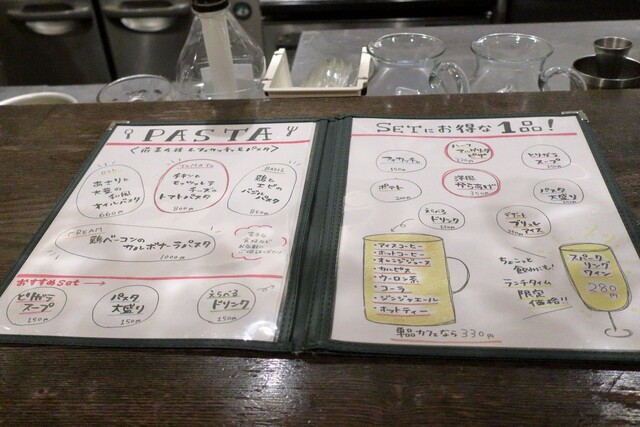 PASTA
OIL
あさりと
大葉の
和風
オイルパスタ
660円
TOMATO
チキンと
モッツァレラ
チーズの
トマトパスタ
860円
BASIL
鶏と
エビの
バジル
パスタ
860円
CREAM
鶏ベーコンの
カルボナーラパスタ
1000円
おすすめset
とりガラ
スープ
150円
パスタ
大盛り
150円
えらべる
ドリンク
150円
SETにお得な1品!
フォカッチャ
ハーフ
マルゲリータ
ピザ
とりガラ
スープ
150円
ポテト
洋風
からあげ
350円
パスタ
大盛り
150円
えらべる
ドリンク
デザート
ブリュレ
アイス
・アイスコーヒー
・ホットコーヒー
・オレンジジュース
・カルピス
・ウーロン茶
・コーラ
・ジンジャエール
・ホットティー
単品カフェなら330円
ちょこっと
飲みにも!
ランチタイム
限定
価格!!
スパーク
リング
ワイン
280
円